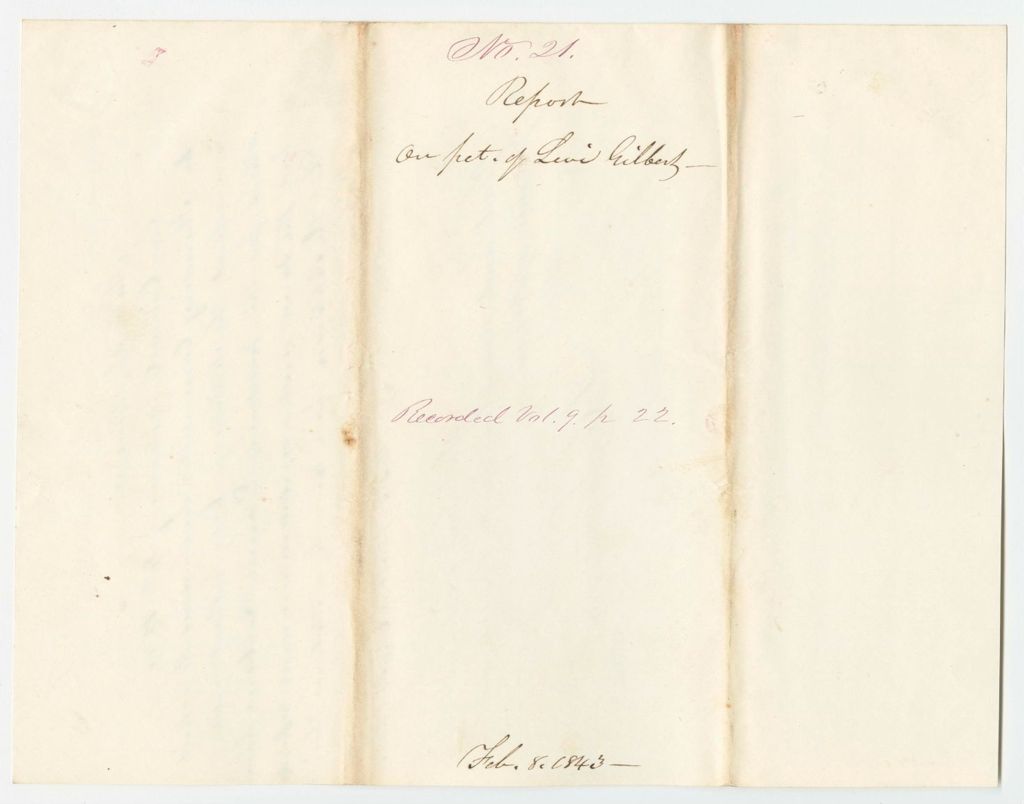 No. 21.
Report
On pet. of Levi Gilbert—
Recorded Vol. 9. p 22.
Feb. 8. 1843—